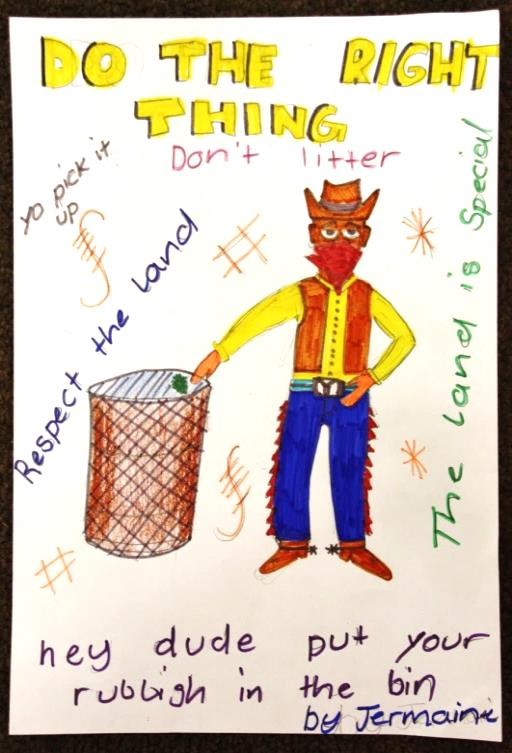 DO THE RIGHT
THING
Don't litter
yo pick it
up
Respect the land
The land is Special
hey dude put your
rubbigh in the bin
by Jermaine